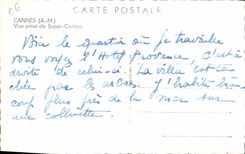 CARTE POSTALE
CANNES (A.-M.)
Vue prise de Super-Cannes
Voici le quartier où je travaille
vous voyez l'Hotel Provence, c'est à
droite de celui-ci. La villa est ca-
chée par les arbres. J'habite beau-
coup plus près de la mer sur
une collinette.